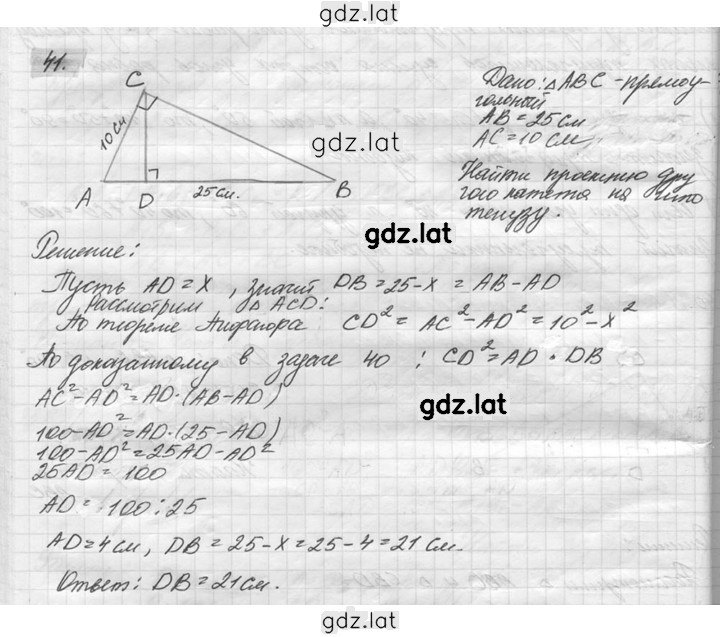 gdz.lat
41.
C
10 см
A
D
25 см.
B
gdz.lat
Дано: △ABC - прямоу-
гольный
AB = 25 см
AC = 10 см,
Найти проекцию дру
гого катета на гипо
тенузу.
gdz.lat
Решение:
Пусть AD = x, значит DB = 25 - x = AB - AD
Рассмотрим △ ACD:
По теореме Пифагора CD² = AC² - AD² = 10² - x²
По доказанному в задаче 40 : CD² = AD · DB
AC² - AD² = AD · (AB - AD)
gdz.lat
100 - AD² = AD · (25 - AD)
100 - AD² = 25AD - AD²
25AD = 100
AD = 100 : 25
AD = 4 см, DB = 25 - x = 25 - 4 = 21 см.
gdz.lat
Ответ: DB = 21 см.
gdz.lat